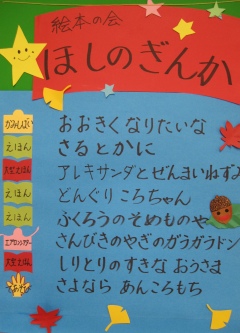 絵本の会
ほしのぎんか
かみしばい おおきくなりたいな
えほん さるとかに
大型えほん アレキサンダとぜんまいねずみ
えほん どんぐりころちゃん
えほん ふくろうのそめものや
エプロンシアター さんびきのやぎのガラガラドン
大型えほん しりとりのすきな おうさま
てあそび さよなら あんころもち